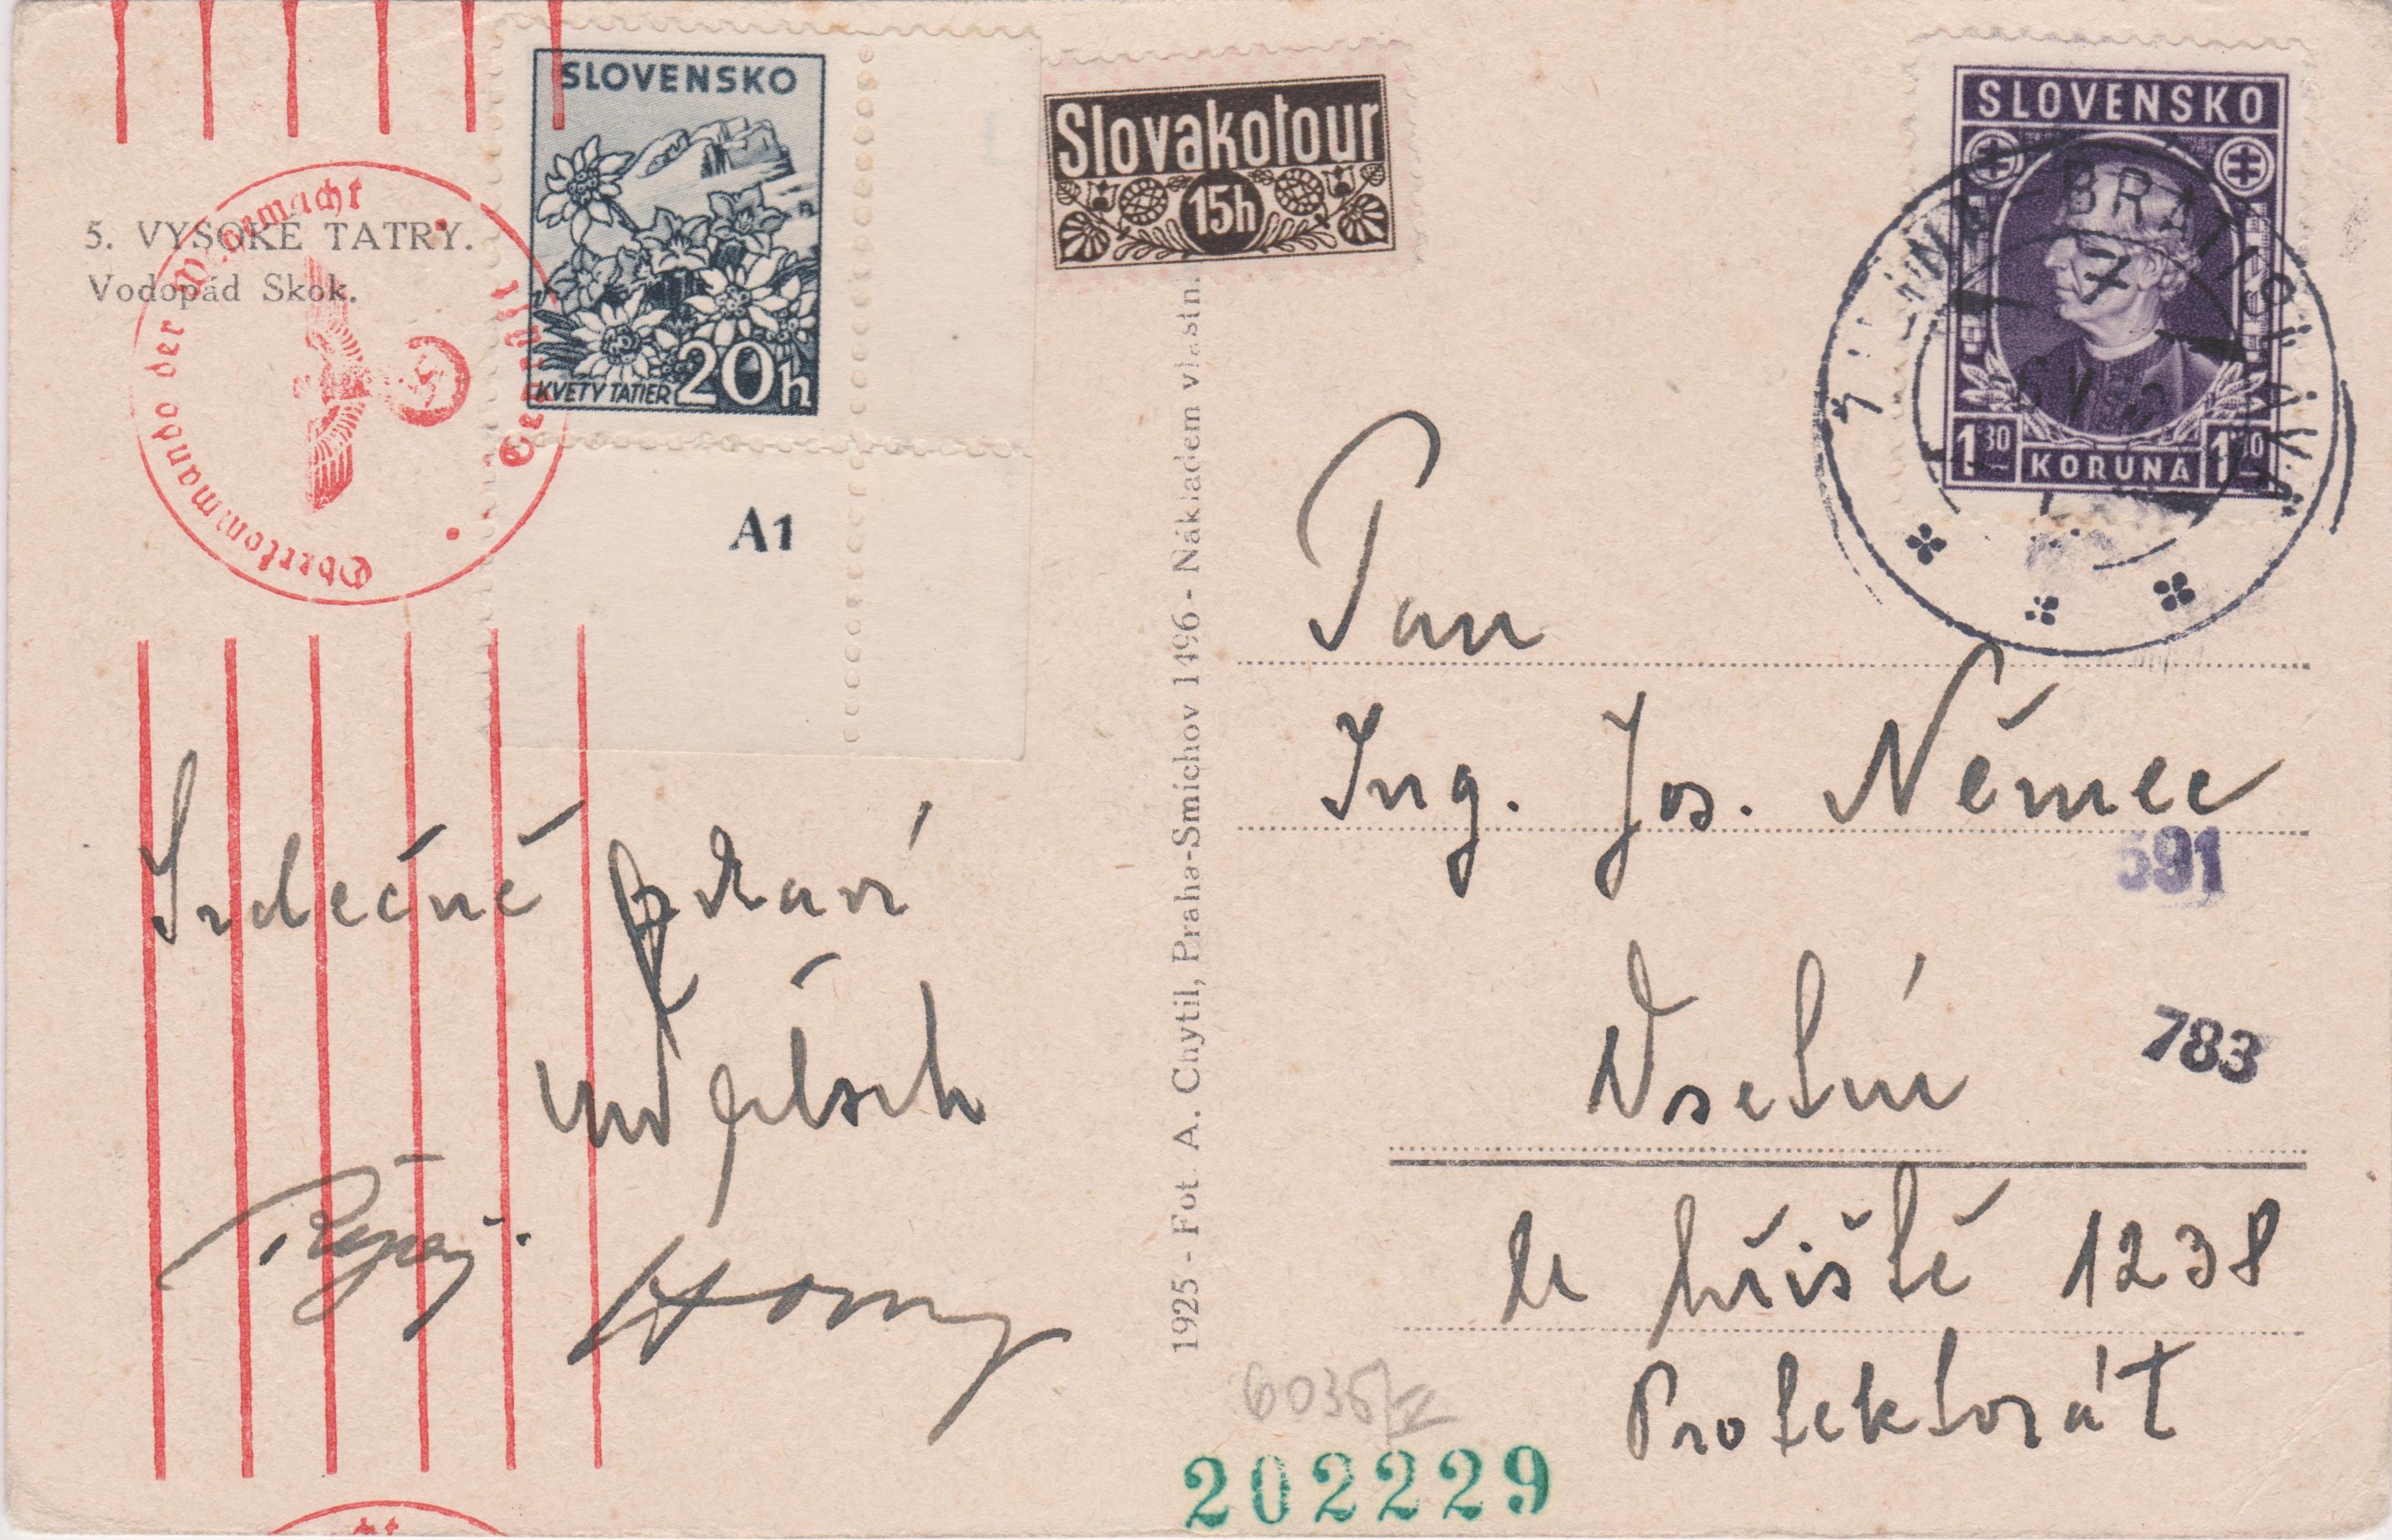 SLOVENSKO
KVETY TATIER 20h
A1
Slovakotour
15h
SLOVENSKO
1 30 KORUNA 1
BRATISLAVA
7
5. VYSOKÉ TATRY.
Vodopád Skok.
Oberkommando der Wehrmacht
Geprüft
1925 - Fot. A. Chytil, Praha-Smíchov 1496 - Nákladem vlastn.
Pan
Ing. Jos. Němec
591
Vsetín
783
u hřiště 1238
Protektorát
Srdečně zdraví
6035/II
202229